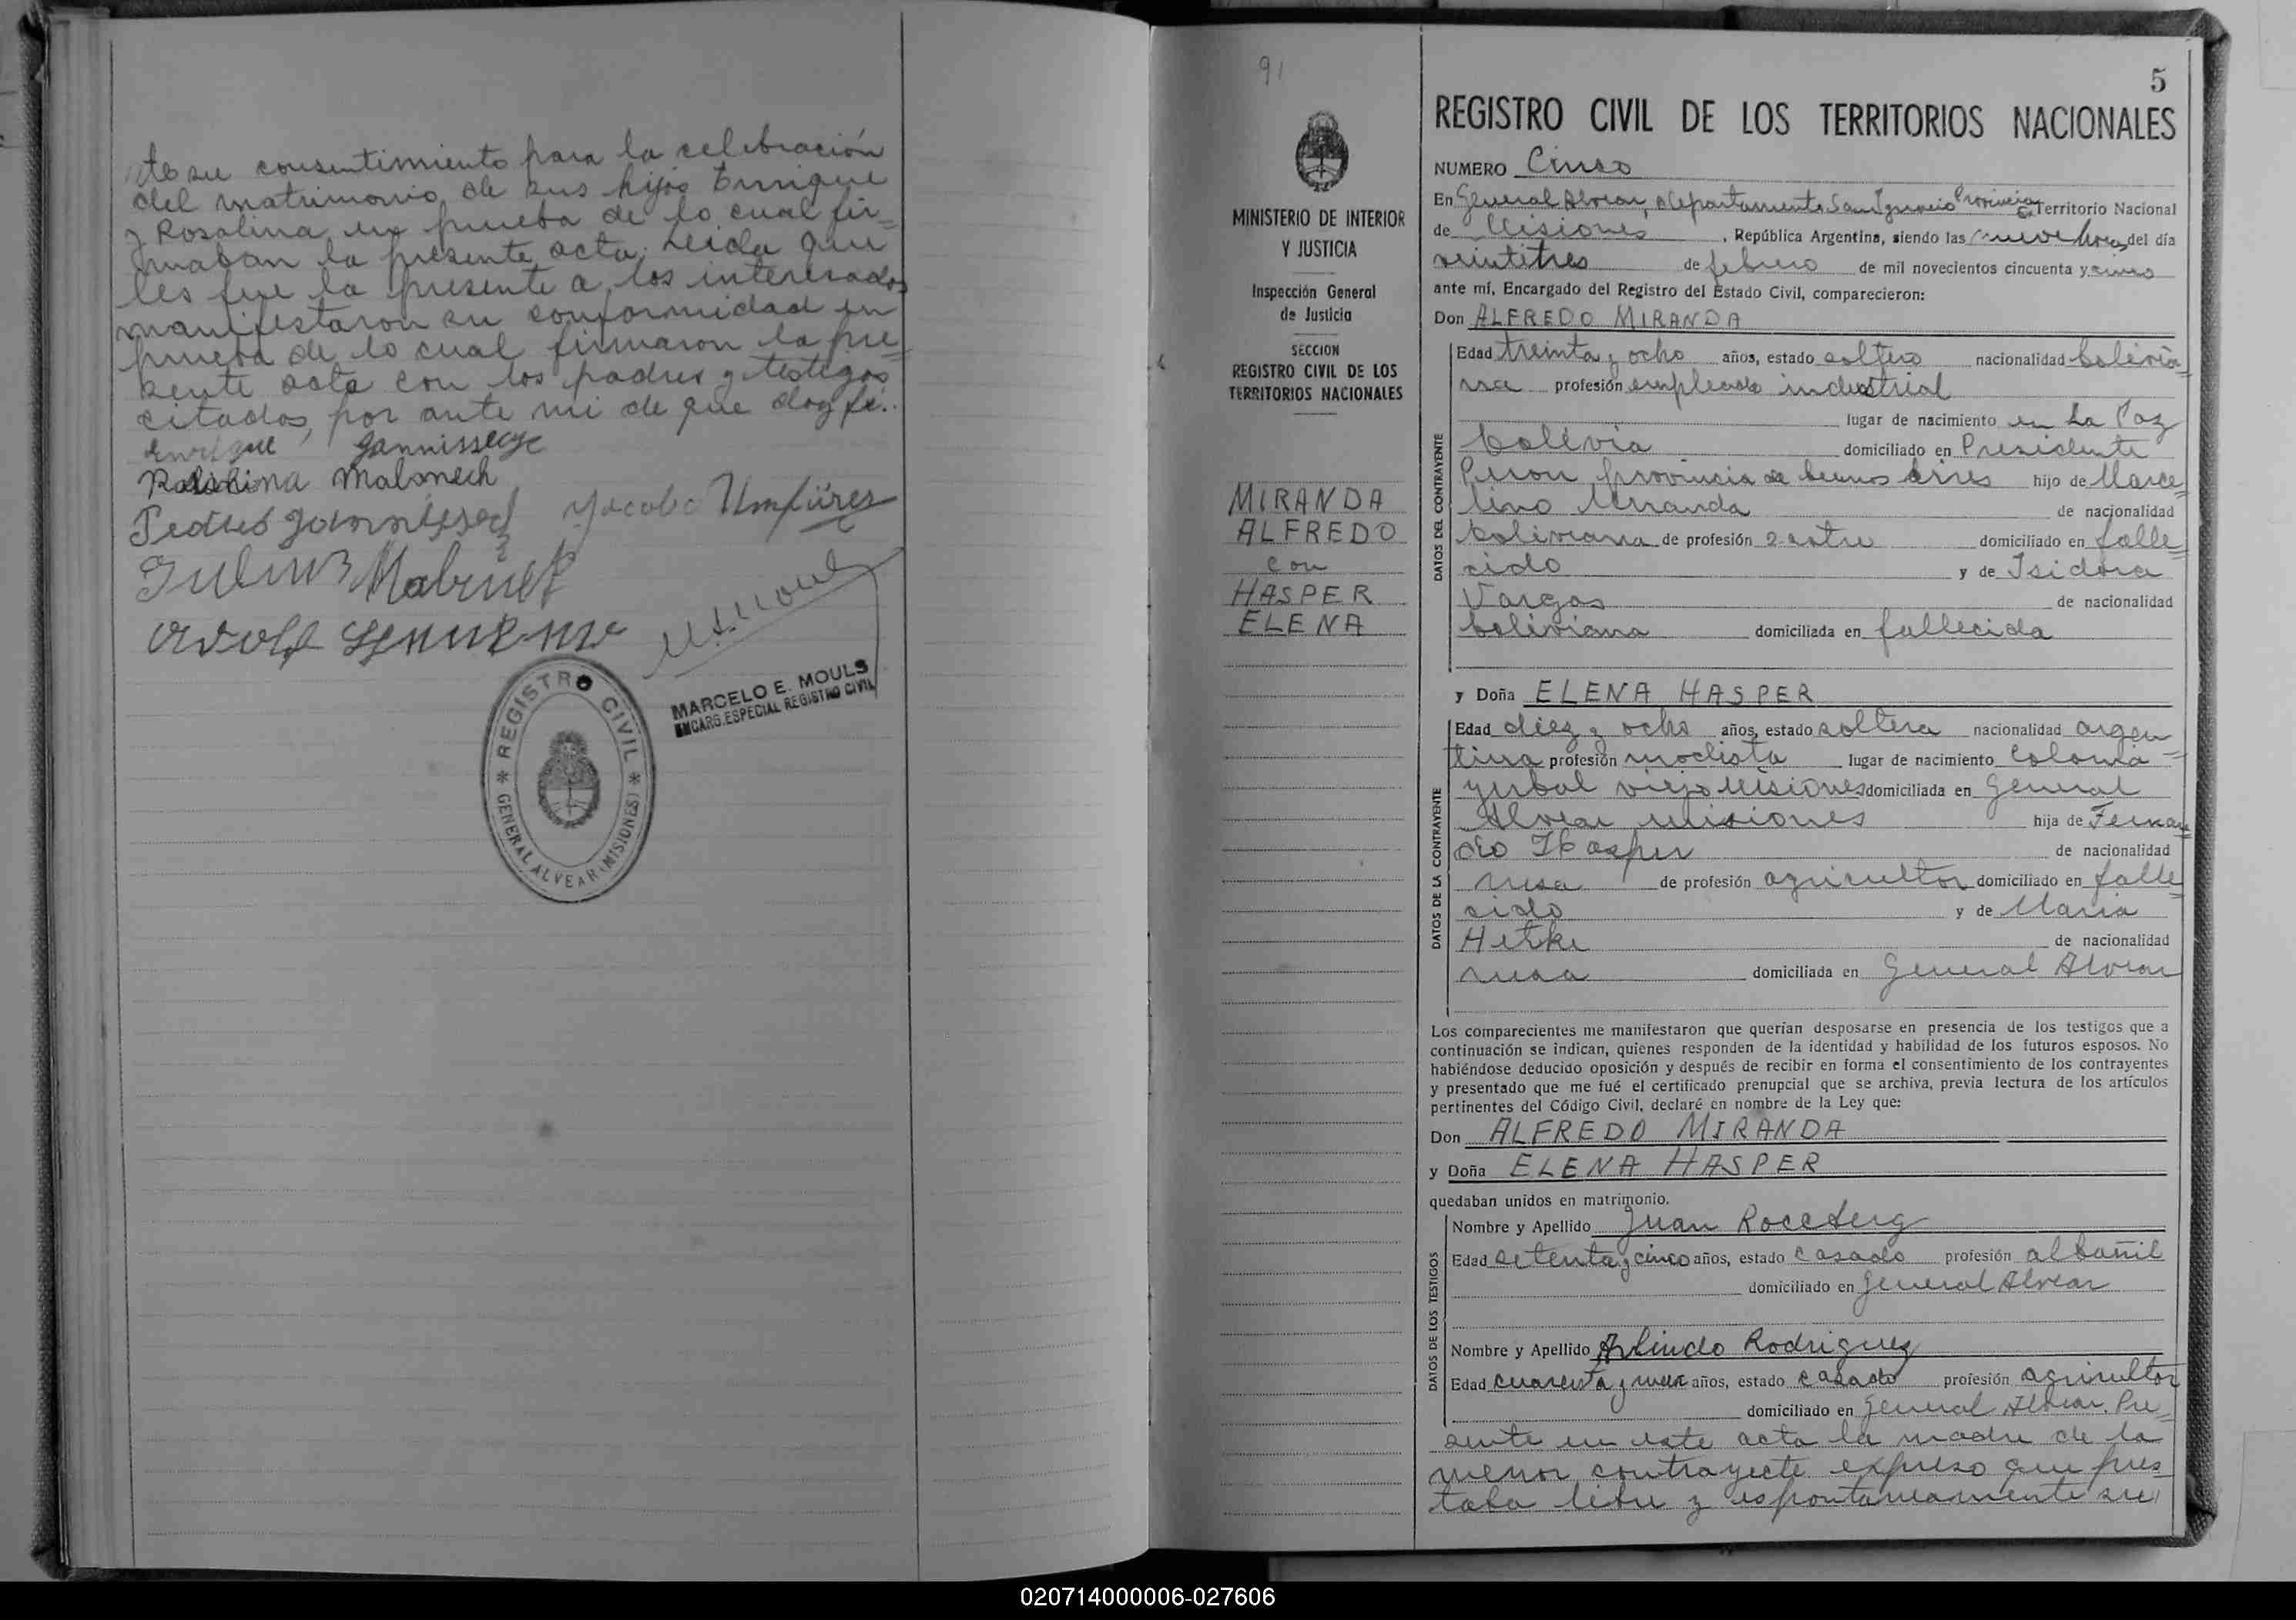 to su consentimiento para la celebración
del matrimonio de sus hijos Enrique
y Rosalina en prueba de lo cual fir=
maban la presente acta. Leida que
les fue la presente a los interesados
manifestaron su conformidad en
prueba de lo cual firmaron la pre=
sente acta con los padres y testigos
citados, por ante mi de que doy fé.
Enrique
MARCELO E. MOULS
ENCARG. ESPECIAL REGISTRO CIVIL
* REGISTRO CIVIL *
GENERAL ALVEAR (MISIONES)
91
MINISTERIO DE INTERIOR
Y JUSTICIA
Inspección General
de Justicia
SECCION
REGISTRO CIVIL DE LOS
TERRITORIOS NACIONALES
MIRANDA
ALFREDO
con
HASPER
ELENA
5
REGISTRO CIVIL DE LOS TERRITORIOS NACIONALES
NUMERO Cinco
En General Alvear, departamento San Ignacio Provincia Territorio Nacional
de Misiones, República Argentina, siendo las nueve horas del día
veintitres de febrero de mil novecientos cincuenta y cinco
ante mí, Encargado del Registro del Estado Civil, comparecieron:
Don ALFREDO MIRANDA
DATOS DEL CONTRAYENTE
Edad treinta y ocho años, estado soltero nacionalidad bolivia=
na profesión empleado industrial
lugar de nacimiento en La Paz
bolivia domiciliado en Presidente
Peron provincia de buenos aires hijo de Marce=
lino Miranda de nacionalidad
boliviana de profesión sastre domiciliado en falle=
cido y de Isidora
Vargas de nacionalidad
boliviana domiciliada en fallecida
y Doña ELENA HASPER
DATOS DE LA CONTRAYENTE
Edad diez y ocho años, estado soltera nacionalidad argen
tina profesión modista lugar de nacimiento Colonia
yerbal viejo Misiones domiciliada en General
Alvear misiones hija de Fernan=
do Hasper de nacionalidad
rusa de profesión agricultor domiciliado en falle=
cido y de Maria
Hetke de nacionalidad
rusa domiciliada en General Alvear
Los comparecientes me manifestaron que querían desposarse en presencia de los testigos que a
continuación se indican, quienes responden de la identidad y habilidad de los futuros esposos. No
habiéndose deducido oposición y después de recibir en forma el consentimiento de los contrayentes
y presentado que me fué el certificado prenupcial que se archiva, previa lectura de los artículos
pertinentes del Código Civil, declaré en nombre de la Ley que:
Don ALFREDO MIRANDA
y Doña ELENA HASPER
quedaban unidos en matrimonio.
DATOS DE LOS TESTIGOS
Nombre y Apellido Juan
Edad setenta y cinco años, estado casado profesión albañil
domiciliado en General Alvear
Nombre y Apellido Arlindo Rodriguez
Edad cuarenta y años, estado casado profesión agricultor
domiciliado en General Alvear. Pre=
sente en este acto la madre de la
menor contrayecte expreso que pres
taba libre y espontaneamente su
020714000006-027606